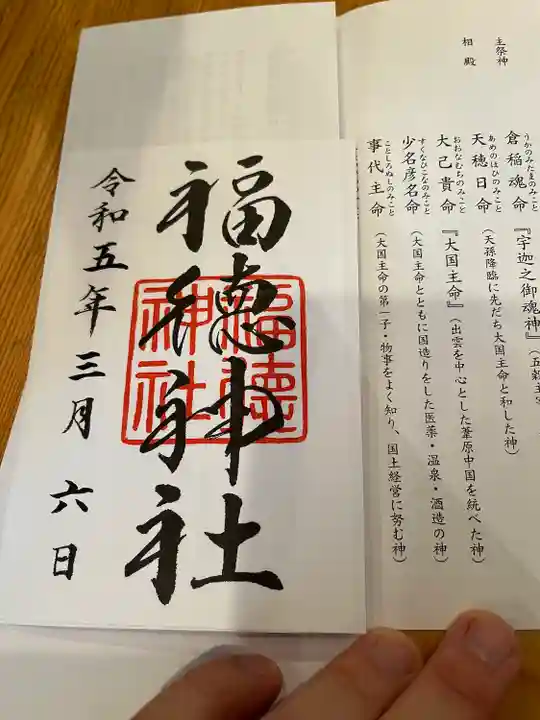 主祭神
倉稲魂命
うかのみたまのみこと
『宇迦之御魂神』
相殿
天穂日命
あめのほひのみこと
(天孫降臨に先だち大国主命と和した神)
大己貴命
おおなむちのみこと
『大国主命』(出雲を中心とした葦原中国を統べた神)
少名彦名命
すくなひこなのみこと
(大国主命とともに国造りをした医薬・温泉・酒造の神)
事代主命
ことしろぬしのみこと
(大国主命の第一子・物事をよく知り、国土経営に努む神)
福徳神社
福徳神社
令和五年三月六日